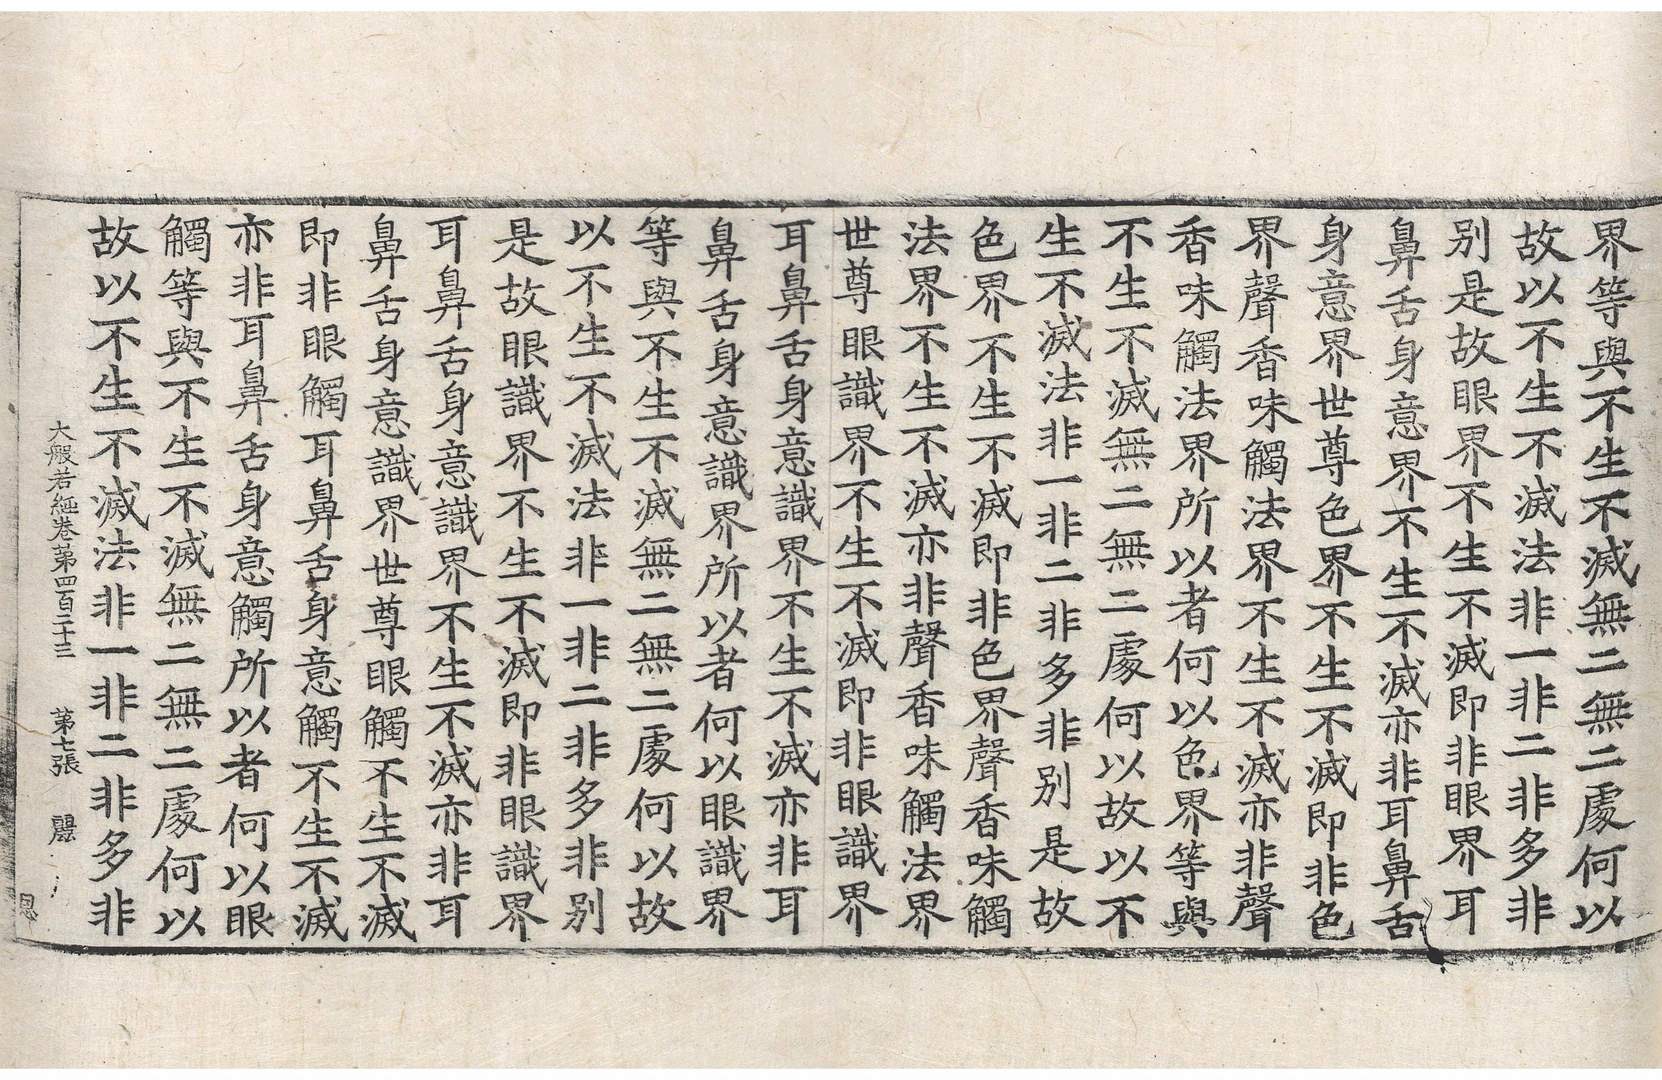 界等與不生不滅無二無二處何以
故以不生不滅法非一非二非多非
別是故眼界不生不滅即非眼界耳
鼻舌身意界不生不滅亦非耳鼻舌
身意界世尊色界不生不滅即非色
界聲香味觸法界不生不滅亦非聲
香味觸法界所以者何以色界等與
不生不滅無二無二處何以故以不
生不滅法非一非二非多非別是故
色界不生不滅即非色界聲香味觸
法界不生不滅亦非聲香味觸法界
世尊眼識界不生不滅即非眼識界
耳鼻舌身意識界不生不滅亦非耳
鼻舌身意識界所以者何以眼識界
等與不生不滅無二無二處何以故
以不生不滅法非一非二非多非別
是故眼識界不生不滅即非眼識界
耳鼻舌身意識界不生不滅亦非耳
鼻舌身意識界世尊眼觸不生不滅
即非眼觸耳鼻舌身意觸不生不滅
亦非耳鼻舌身意觸所以者何以眼
觸等與不生不滅無二無二處何以
故以不生不滅法非一非二非多非
大般若經卷第四百二十三 第七張 麗
恩